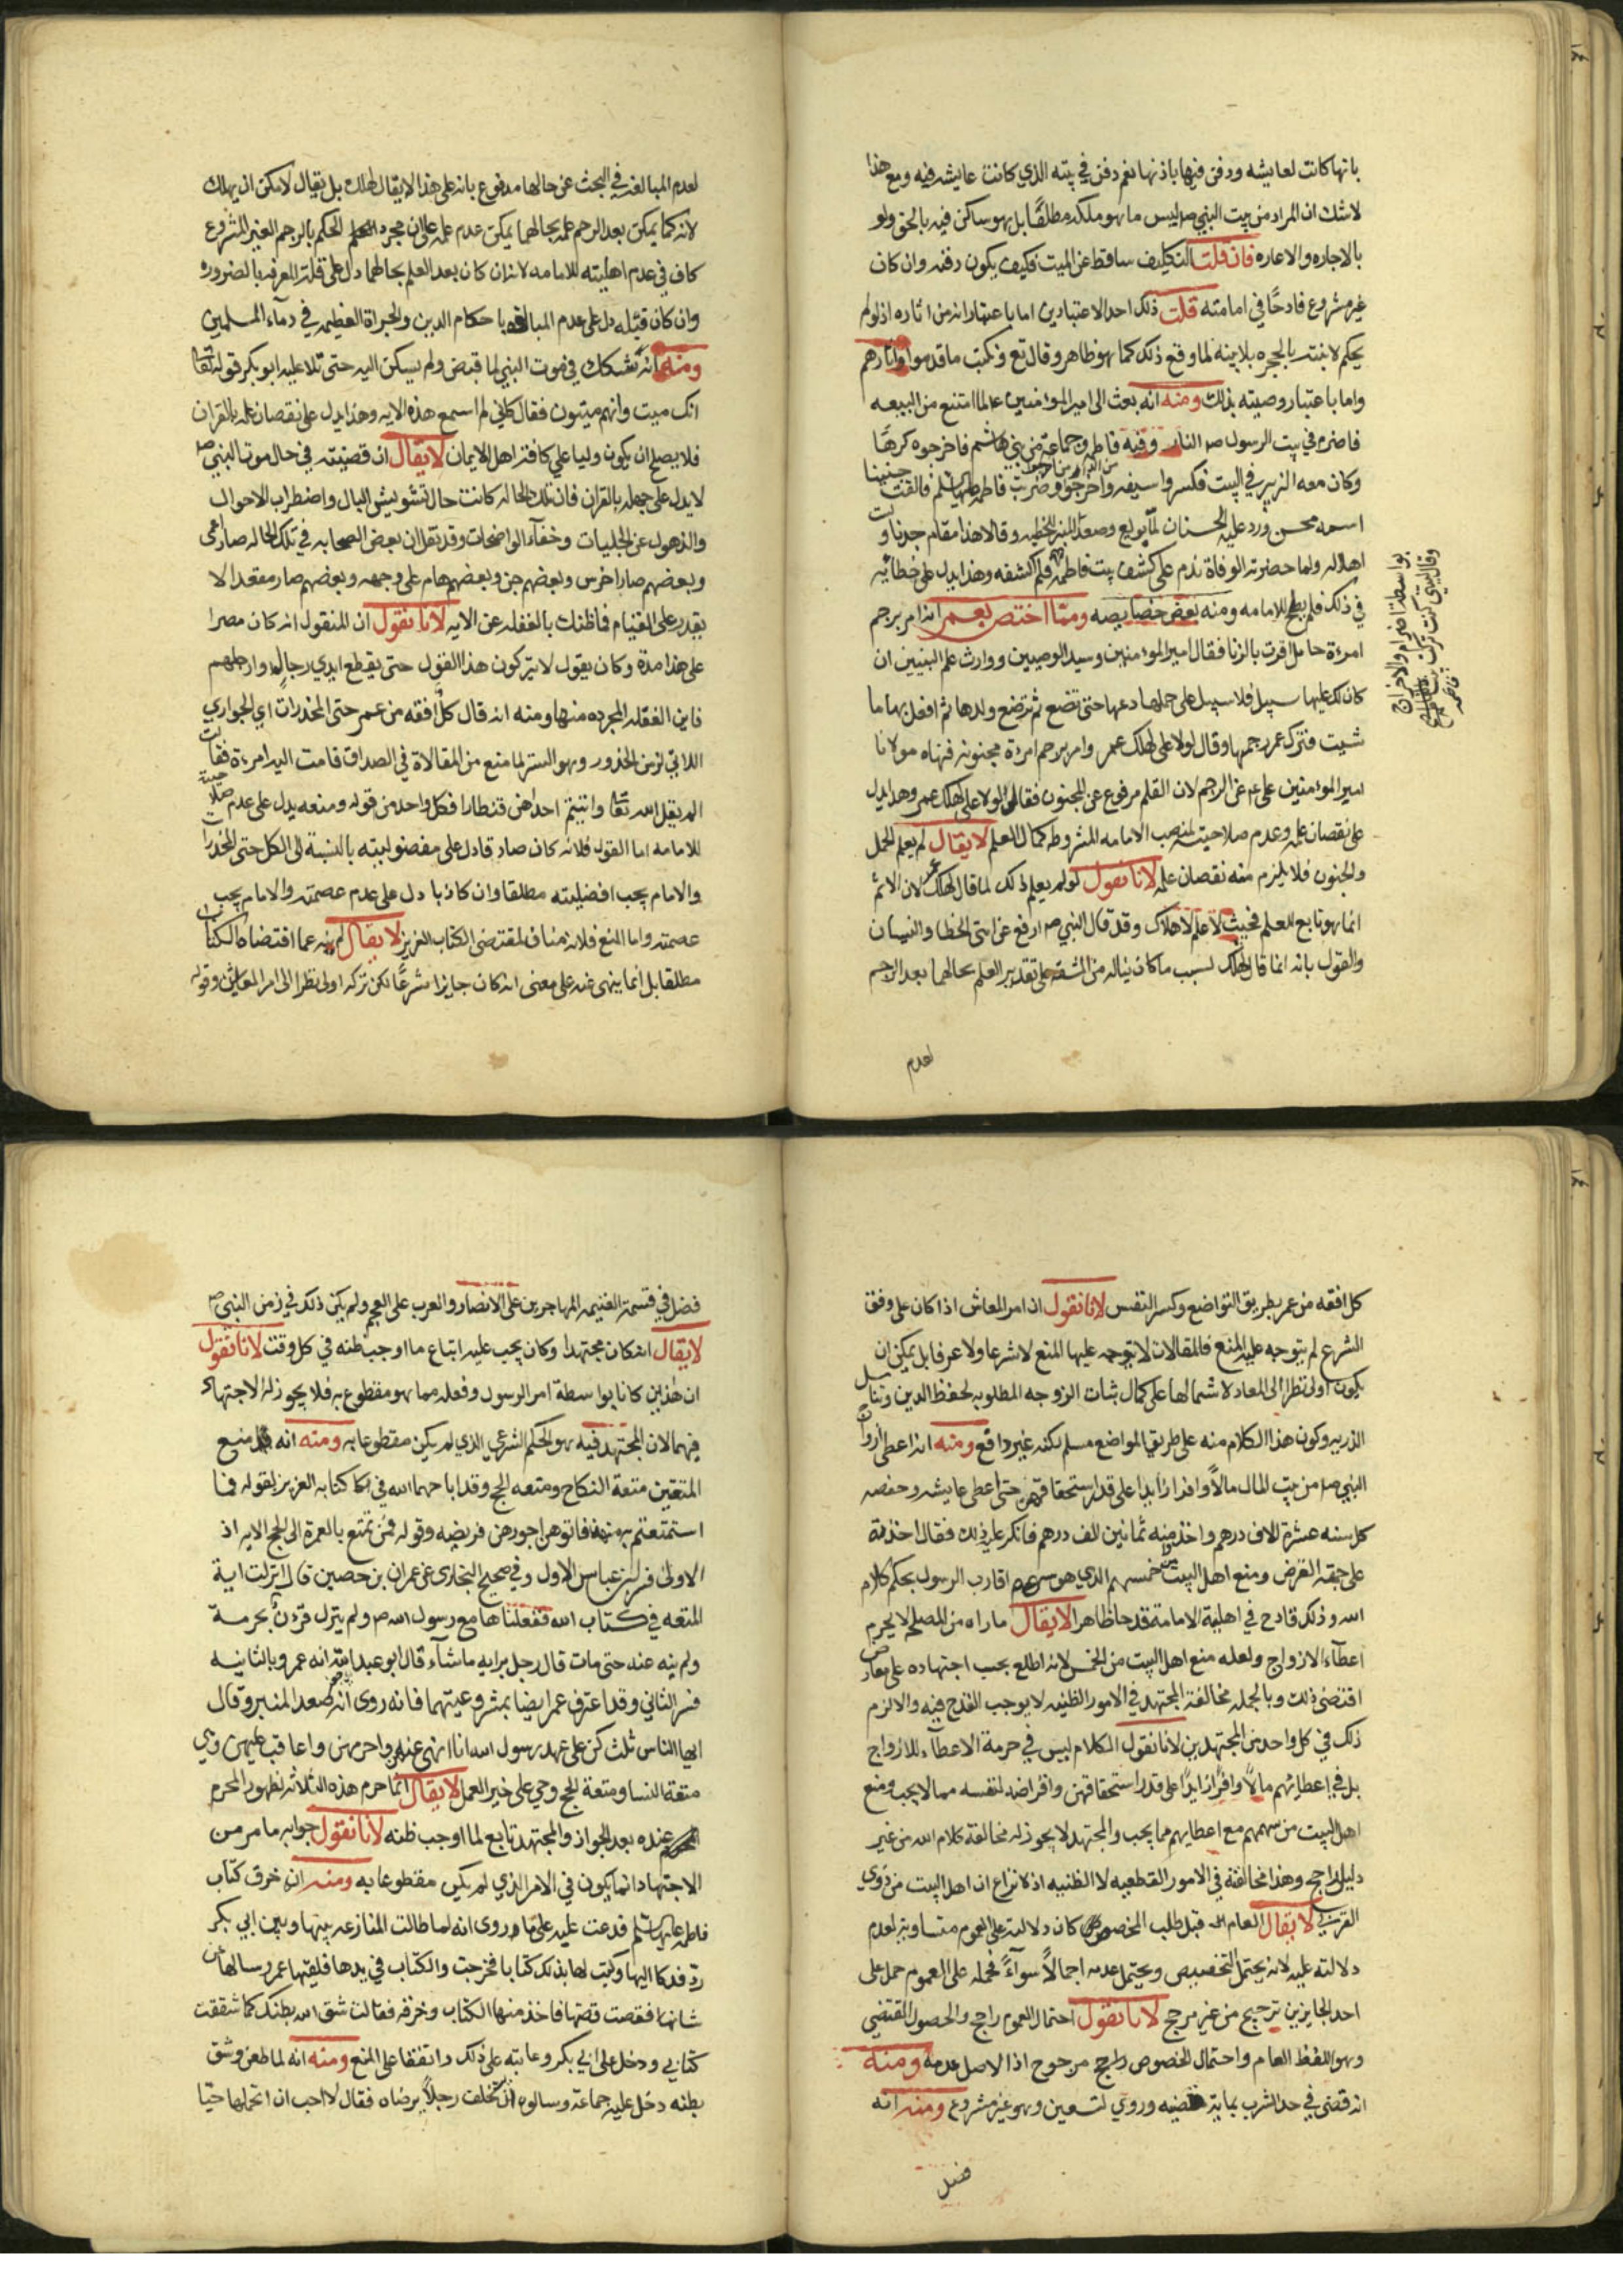 بانها كانت لعايشه ودفن فيها باذنها نعم دفن في بيته الذي كانت عايشه فيه ومع هذا
لاشك ان المراد من بيت النبي ص ليس ما هو ملكه مطلقا بل هو ساكن فيه بالحق ولو
بالاجاره والاعاره فان قلت التكليف ساقط عن الميت فكيف يكون دفنه وان كان
غير مشروع قادحا في امامته قلت ذلك احد الاعتبارين اما باعتبار انه من اثاره اذ لو لم
يحكم لابنته بالحجره بلا بينه لما وقع ذلك كما هو ظاهر وقال تع ونكتب ما قدموا واثارهم
واما باعتبار وصيته بذلك ومنه انه بعث الى امير المؤمنين ع لما امتنع من البيعه
فاضرم في بيت الرسول ص النار وفيه فاطمه وجماعة من بني هاشم فاخرجوه كرها
وكان معه الزبير في البيت فكسروا سيفه واخرجوه وضربت فاطمه عليها السلم فالقت جنينا
اسمه محسن ورد عليه الحسنان لما بويع وصعد المنبر للخطبه وقالا هذا مقام جدنا ولست
اهلا له ولما حضرته الوفاة ندم على كشف بيت فاطمه فلم اكشفه وهذا يدل على خطائه
في ذلك فلم يصلح للامامه ومنه بعض خصايصه ومما اختص بعمر انه امر برجم
امرءة حامل اقرت بالزنا فقال امير المؤمنين وسيد الوصيين ووارث علم النبيين ان
كان لك عليها سبيل فلا سبيل على حملها دعها حتى تضع ثم ترضع ولدها ثم افعل بها ما
شيت فترك عمر رجمها وقال لولا علي لهلك عمر وامر برجم امرءة مجنونه فنهاه مولانا
امير المؤمنين علي ع عن الرجم لان القلم مرفوع عن المجنون فقال لولا علي لهلك عمر وهذا يدل
على نقصان علمه وعدم صلاحيته لمنصب الامامه المشروطه بكمال العلم لايقال لم يعلم الحمل
والجنون فلا يلزم منه نقصان علمه لانا نقول لو لم يعلم ذلك لما قال لهلك عمر لان الاثم
انما هو تابع للعلم فحيث لا علم لا هلاك وقد قال النبي ص ارفع عن امتي الخطا والنسيان
والقول بانه انما قال لهلك لسبب ما كان يناله من المشقه على تقدير العلم بحالهما بعد الرجم
لعدم
بواسطة اضرام والاخراج
وقال ليتني كنت تركت بيت فاطمه
لعدم المبالغه في البحث عن حالها مدفوع بانه على هذا لايقال لهلك بل يقال لامكن ان يهلك
لانه كما يمكن بعد الرجم علمه بحالهما يمكن عدم علمه على ان مجرد الحكم بالرجم الغير المشروع
كاف في عدم اهليته للامامه لانه ان كان بعد العلم بحالهما دل على قلة المعرفه بالضروره
وان كان قبله دل على عدم المبالاه باحكام الدين والجراة العظيمه في دماء المسلمين
ومنه انه تشكك في موت النبي لما قبض ولم يسكن اليه حتى تلا عليه ابو بكر قوله تعا
انك ميت وانهم ميتون فقال كاني لم اسمع هذه الايه وهذا يدل على نقصان علمه بالقران
فلا يصلح ان يكون وليا على كافة اهل الايمان لايقال ان قضيته في حال موت النبي ص
لايدل على جهله بالقران فان تلك الحاله كانت حال تشويش البال واضطراب الاحوال
والذهول عن الجليات وخفاء الواضحات وقد نقل ان بعض الصحابه في تلك الحاله صار اعمى
وبعضهم صار اخرس وبعضهم جن وبعضهم هام على وجهه وبعضهم صار مقعدا لا
يقدر على القيام فما ظنك بالغفله عن الايه لانا نقول ان المنقول انه كان مصرا
على هذا مدة وكان يقول لا يتركون هذا القول حتى يقطع ايدي رجال وارجلهم
فاين الغفله المجرده منها ومنه انه قال كل افقه من عمر حتى المخدرات اي الجواري
اللاتي لزمن الخدور وهو الستر لما منع من المغالاة في الصداق قامت اليه امرءة فقالت
الم يقل الله تعا واتيتم احداهن قنطارا فكل واحد من قوله ومنعه يدل على عدم صلاحيته
للامامه اما القول فلانه كان صادقا دل على مفضوليته بالنسبة الى الكل حتى المخدرات
والامام يجب افضليته مطلقا وان كاذبا دل على عدم عصمته والامام يجب
عصمته واما المنع فلانه مناف لمقتضى الكتاب العزيز لايقال لم ينه عما اقتضاه الكتاب
مطلقا بل انما ينهى عنه على معنى انه كان جايزا شرعا لكن تركه اولى نظرا الى امر المعاش وقوله
كل افقه من عمر بطريق التواضع وكسر النفس لانا نقول ان امر المعاش اذا كان على وفق
الشرع لم يتوجه عليه المنع فالمغالات لا يتوجه عليها المنع لا شرعا ولا عرفا بل يمكن ان
يكون اولى نظرا الى المعاد لاشتمالها على كمال ثبات الزوجه المطلوبه لحفظ الدين وتناسل
الذريه وكون هذا الكلام منه على طريق التواضع مسلم لكنه غير واقع ومنه انه اعطى ازواج
النبي ص من بيت المال مالا وافرا زايدا على قدر استحقاقهن حتى اعطى عايشه وحفصه
كل سنه عشرة الاف درهم واخذ منه ثمانين الف درهم فانكر عليه ذلك فقال اخذته
على جهة القرض ومنع اهل البيت من خمسهم الذي هو سهم اقارب الرسول بحكم كلام
الله وذلك قادح في اهلية الامامة قدحا ظاهرا لايقال ما راه من المصلحه لايحرم
اعطاء الازواج ولعله منع اهل البيت من الخمس لانه اطلع بحسب اجتهاده على معارض
اقتضى ذلك وبالجمله مخالفة المجتهد في الامور الظنيه لا يوجب القدح فيه والا لزم
ذلك في كل واحد من المجتهدين لانا نقول الكلام ليس في حرمة الاعطاء للازواج
بل في اعطائهم مالا وافرا زايدا على قدر استحقاقهن واقراضه لنفسه مما لا يجب ومنع
اهل البيت من سهمهم مع اعطايهم مما يجب والمجتهد لا يجوز له مخالفة كلام الله من غير
دليل راجح وهذا مخالفة في الامور القطعيه لا الظنيه اذ لا نزاع ان اهل البيت من ذوي
القربى لايقال العام قبل طلب المخصص كان دلالته على العموم متساويه لعدم
دلالته عليه لانه يحتمل التخصيص ويحتمل عدمه اجمالا سواء فحمله على العموم حمل على
احد الجايزين ترجيح من غير مرجح لانا نقول احتمال العموم راجح والحصول المقتضي
وهو اللفظ العام واحتمال الخصوص مرجوح اذ الاصل عدمه ومنه
انه قضى في حد الشرب بماية قضيه وروي تسعين وهو غير مشروع ومنه انه
فضل
فضل في قسمة الغنيمه المهاجرين على الانصار والعرب على العجم ولم يكن ذلك في زمن النبي ص
لايقال انه كان مجتهدا وكان يجب عليه اتباع ما اوجب ظنه في كل وقت لانا نقول
ان هذين كانا بواسطة امر الرسول وفعله مما هو مقطوع به فلا يجوز له الاجتهاد
فيهما لان المجتهد فيه هو الحكم الشرعي الذي لم يكن مقطوعا به ومنه انه منع
المتعتين متعة النكاح ومتعه الحج وقد اباحهما الله في كتابه العزيز بقوله فما
استمتعتم به منهن فاتوهن اجورهن فريضه وقوله فمن تمتع بالعمرة الى الحج الايه اذ
الاولى فسر ابن عباس الاول وفي صحيح البخاري عن عمران بن حصين قال انزلت اية
المتعه في كتاب الله ففعلناها مع رسول الله ص ولم ينزل قرءن بحرمة
ولم ينه عنه حتى مات قال رجل برايه ما شاء قال ابو عبد الله انه عمر وبالثانيه
فسر الثاني وقد اعترف عمر ايضا بمشروعيتهما فانه روى انه صعد المنبر وقال
ايها الناس ثلث كن على عهد رسول الله انا انهى عنهن واحرمهن واعاقب عليهن وهي
متعة النسا ومتعة الحج وحي على خير العمل لايقال انما حرم هذه الثلاثه لظهور المحرم
عنده بعد الجواز والمجتهد تابع لما اوجب ظنه لانا نقول جوابه ما مر من
الاجتهاد انما يكون في الامر الذي لم يكن مقطوعا به ومنه انه خرق كتاب
فاطمه عليها السلم فدعت عليه على ما روى انه لما طالت المنازعه بينها وبين ابي بكر
رد فدكا اليها وكتب لها بذلك كتابا فخرجت والكتاب في يدها فلقيها عمر وسالها عن
شانها فقصت قصتها فاخذ منها الكتاب وخرقه فقالت شق الله بطنك كما شققت
كتابي ودخل على ابي بكر وعاتبه على ذلك واتفقا على المنع ومنه انه لما طعن وشق
بطنه دخل عليه جماعة وسالوه ان يتخلف رجلا يرضاه فقال لا احب ان اتحملها حيا